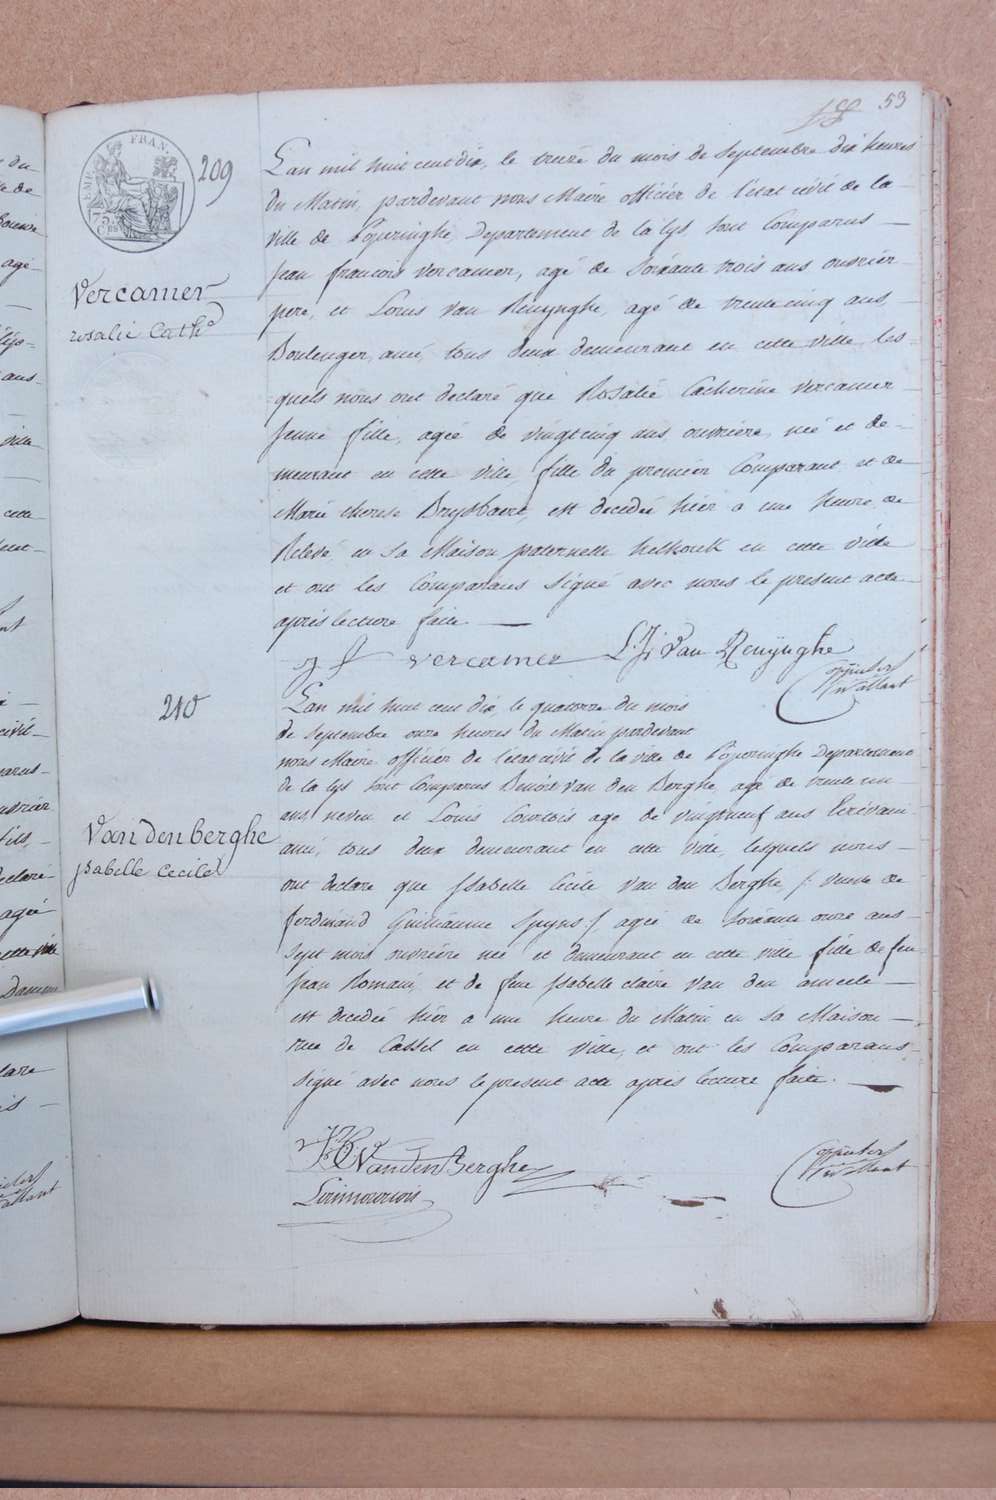 53
FRAN.
75
209
Lan mil huit cent dix, le treize du mois de Septembre dix heures
du Matin, pardevant nous Maire officier de l'état civil de la
ville de Poperinghe, Departement de la lys sont Comparus
Jean francois Vercamer, agé de Soixante trois ans ouvrier
pere, et Louis Van Renynghe, agé de trente cinq ans,
Boulenger, ami, tous deux demeurant en cette ville les-
quels nous ont declaré que Rosalie Catherine Vercamer
Jeune fille, agée de vingt cinq ans, ouvrière, née et de-
meurant en cette ville fille du premier Comparant et de
Marie therese Brysbaert, est decedée hier a une heure de
Relevé, en sa Maison paternelle en cette ville
et ont les Comparans Signé avec nous le present acte
après lecture faite.
Vercamer
rosalie Cath.
J f Vercamer L. J. Van Renynghe
210
Lan mil huit cent dix, le quatorze du mois
de Septembre onze heures du Matin pardevant
nous Maire officier de l'état civil de la ville de Poperinghe Departement
de la lys sont Comparus Benoit Van den Berghe, agé de trente un
ans neveu et Louis Courtois age de vingtneuf ans Ecrivain
ami, tous deux demeurant en cette ville, lesquels nous
ont declare que Isabelle Cecile Van den Berghe /: veuve de
ferdinand Guillaume Spyns :/ agée de Soixante onze ans
Sept mois ouvrière née et demeurant en cette ville fille de feu
Jean Romain, et de feue Isabelle claire Van den
est decedée hier a une heure du Matin en sa Maison
rue de Cassel en cette ville, et ont les Comparans
Signé avec nous le present acte après lecture faite.
Van den berghe
Isabelle Cecile
VandenBerghe